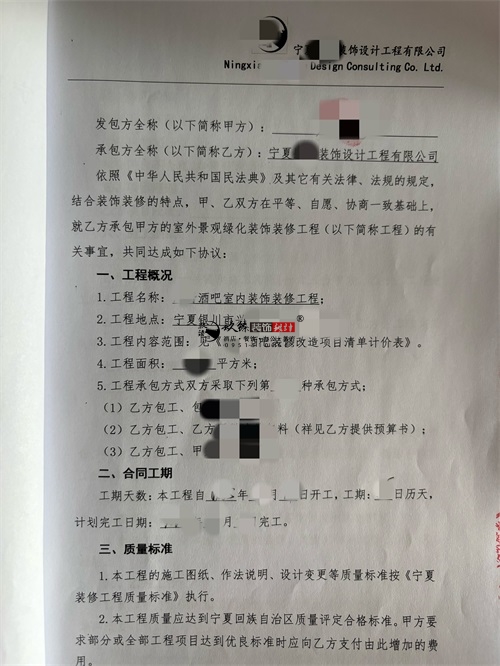 宁 装饰设计工程有限公司
Ningxia Design Consulting Co. Ltd.
发包方全称（以下简称甲方）：
承包方全称（以下简称乙方）：宁夏 装饰设计工程有限公司
依照《中华人民共和国民法典》及其它有关法律、法规的规定，
结合装饰装修的特点，甲、乙双方在平等、自愿、协商一致基础上，
就乙方承包甲方的室外景观绿化装饰装修工程（以下简称工程）的有
关事宜，共同达成如下协议：
一、工程概况
1.工程名称： 酒吧室内装饰装修工程；
2.工程地点：宁夏银川市兴
装饰设计®
3.工程内容范围：见《 吧装修改造项目清单计价表》。
4.工程面积： 平方米；
5.工程承包方式双方采取下列第 种承包方式；
（1）乙方包工、包
（2）乙方包工、乙方 料（祥见乙方提供预算书）；
（3）乙方包工、甲
二、合同工期
工期天数：本工程自 年 月 日开工，工期： 日历天，
计划完工日期： 月 完工。
三、质量标准
1.本工程的施工图纸、作法说明、设计变更等质量标准按《宁夏
装修工程质量标准》执行。
2.本工程质量应达到宁夏回族自治区质量评定合格标准。甲方要
求部分或全部工程项目达到优良标准时应向乙方支付由此增加的费
用。